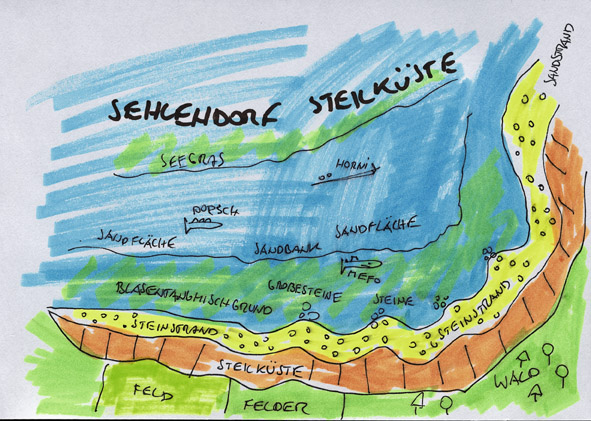 SANDSTRAND
SEHLENDORF STEILKÜSTE
SEEGRAS
HORNI
DORSCH
SANDFLÄCHE
SANDBANK
SANDFLÄCHE
MEFO
BLASENTANGMISCHGRUND
GROßESTEINE
STEINE
STEINSTRAND
STEINSTRAND
STEILKÜSTE
WALD
FELD
FELDER